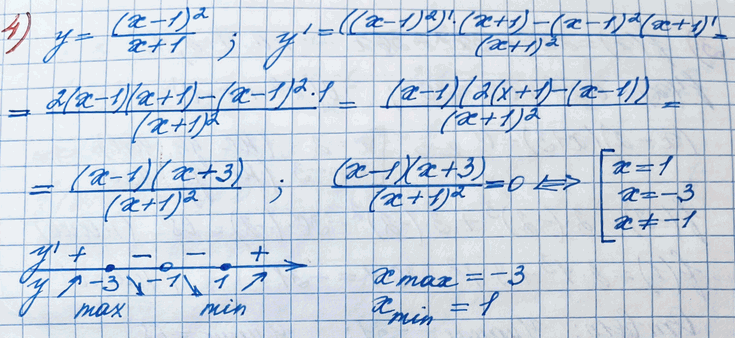 4) y = (x-1)²/(x+1) ; y' = (((x-1)²)'·(x+1)-(x-1)²(x+1)')/(x+1)² =
= (2(x-1)(x+1)-(x-1)²·1)/(x+1)² = ((x-1)(2(x+1)-(x-1)))/(x+1)² =
= ((x-1)(x+3))/(x+1)² ; ((x-1)(x+3))/(x+1)² = 0 ⟺ [ x=1
x=-3
x≠-1
y' + - - +
y ↗ -3 ↘ -1 ↘ 1 ↗
max min
x max = -3
x min = 1